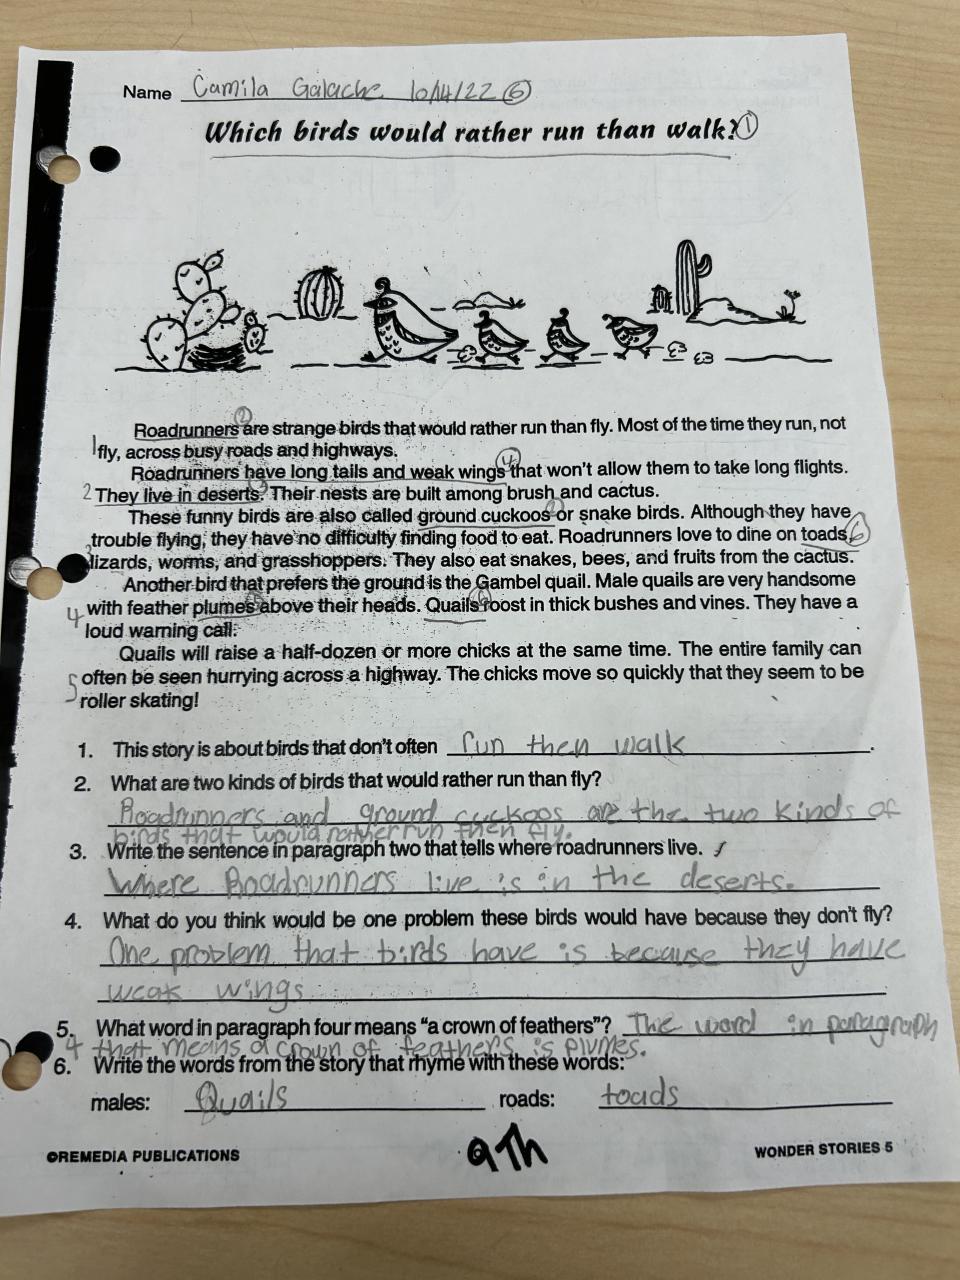 Name Camila Galache 10/14/22 6
Which birds would rather run than walk? 1
Roadrunners 2 are strange birds that would rather run than fly. Most of the time they run, not
1 fly, across busy roads and highways.
Roadrunners have long tails and weak wings 4 that won't allow them to take long flights.
2 They live in deserts. 3 Their nests are built among brush and cactus.
These funny birds are also called ground cuckoos 2 or snake birds. Although they have
3 trouble flying, they have no difficulty finding food to eat. Roadrunners love to dine on toads, 6
lizards, worms, and grasshoppers. They also eat snakes, bees, and fruits from the cactus.
Another bird that prefers the ground is the Gambel quail. Male quails are very handsome
4 with feather plumes 5 above their heads. Quails 6 roost in thick bushes and vines. They have a
loud warning call.
Quails will raise a half-dozen or more chicks at the same time. The entire family can
5 often be seen hurrying across a highway. The chicks move so quickly that they seem to be
roller skating!
1. This story is about birds that don't often run then walk.
2. What are two kinds of birds that would rather run than fly?
Roadrunners and ground cuckoos are the two kinds of
birds that would rather run then fly.
3. Write the sentence in paragraph two that tells where roadrunners live.
Where Roadrunners live is in the deserts.
4. What do you think would be one problem these birds would have because they don't fly?
One problem that birds have is because they have
weak wings
5. What word in paragraph four means "a crown of feathers"? The word in paragraph
4 that means a crown of feathers is plumes.
6. Write the words from the story that rhyme with these words:
males: Quails roads: toads
©REMEDIA PUBLICATIONS 9Th WONDER STORIES 5